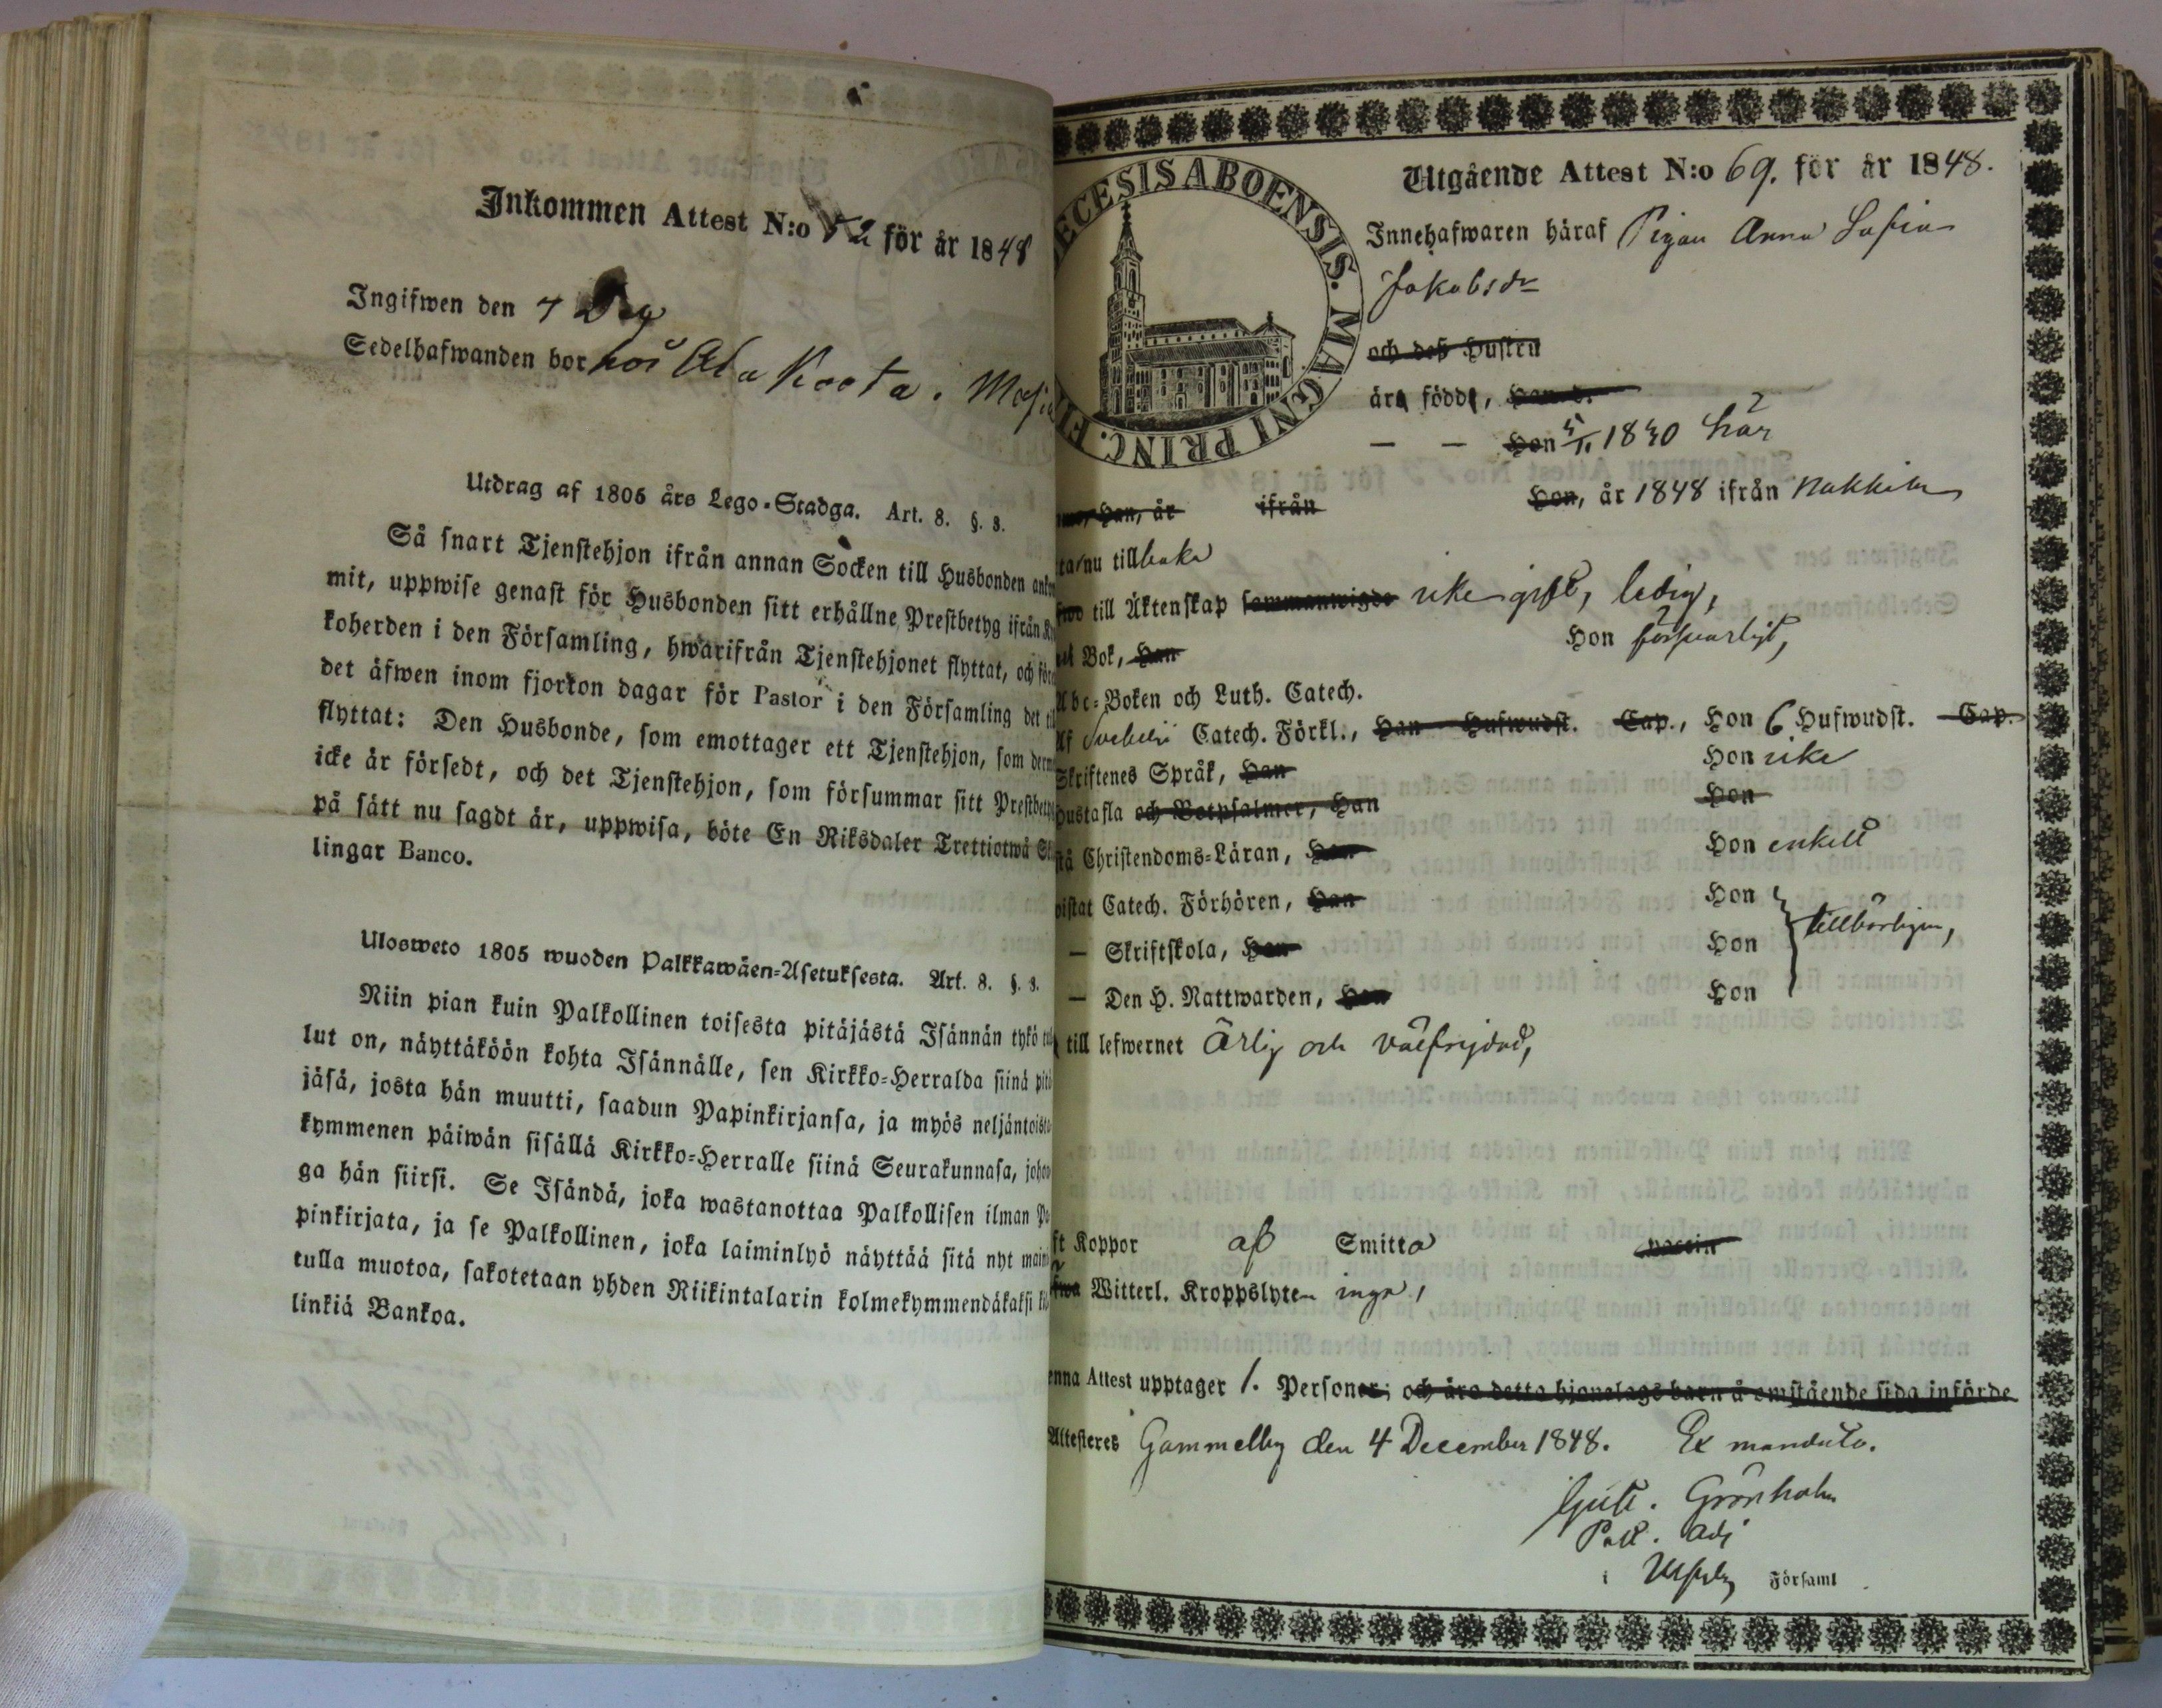 Inkommen Attest N:o 52 för år 1848
Ingifwen den 7 Dec
Sedelhafwanden bor hos Ala Koota.
Utdrag af 1805 års Lego-Stadga. Art. 8. §. 8.
Så snart Tjenstehjon ifrån annan Socken till Husbonden
mit, uppwise genast för Husbonden sitt erhållne Prestbetyg ifrån
koherden i den Församling, hwarifrån Tjenstehjonet flyttat, och
det äfwen inom fjorton dagar för Pastor i den Församling det
flyttat: Den Husbonde, som emottager ett Tjenstehjon, som
icke är försedt, och det Tjenstehjon, som försummar sitt
på sätt nu sagdt är, uppwisa, böte En Riksdaler Trettiotwå
lingar Banco.
Ulosweto 1805 wuoden Palkkawäen-Asetuksesta. Art. 8. §. 8.
Niin pian kuin Palkollinen toisesta pitäjästä Isännän tykö
lut on, näyttäköön kohta Isännälle, sen Kirkko-Herralda siinä
jäsä, josta hän muutti, saadun Papinkirjansa, ja myös
kymmenen päiwän sisällä Kirkko-Herralle siinä Seurakunnasa,
ga hän siirsi. Se Isändä, joka wastanottaa Palkollisen ilman
pinkirjata, ja se Palkollinen, joka laiminlyö näyttää sitä nyt
tulla muotoa, sakotetaan yhden Riikintalarin kolmekymmendäkaksi
linkiä Bankoa.
ECESIS ABOENSIS. MAGNI PRINC. FI
Utgående Attest N:o 69. för år 1848.
Innehafwaren häraf Pigan Anna Sofia
Jakobsdr
och deß Hustru
är född,
Hon 1830 här
Han, år ifrån Hon, år 1848 ifrån Nakkila
nu tillbaka
till Äktenskap sammanwigde icke gift, ledig,
Bok, Han Hon försvarligt,
Abc-Boken och Luth. Catech.
Af Svebelii Catech. Förkl., Han Hufwudst. Cap., Hon 6 Hufwudst. Cap.
Skriftenes Språk, Han Hon icke
Hustafla och Botpsalmer, Han Hon
Christendoms-Läran, Han Hon enkelt
Catech. Förhören, Han Hon
— Skriftskola, Han Hon tillbörligen,
— Den H. Nattwarden, Han Hon
till lefwernet Ärlig och välfrejdad,
Koppor af Smitta vaccin
Witterl. Kroppslyten inga,
enna Attest upptager 1. Personer; och äro detta hjonelags barn å omstående sida införde
Attesteres Gammelby den 4 December 1848. Ex mandato.
Gust. Grönholm
Past. Adj
i Ulfsby Församl